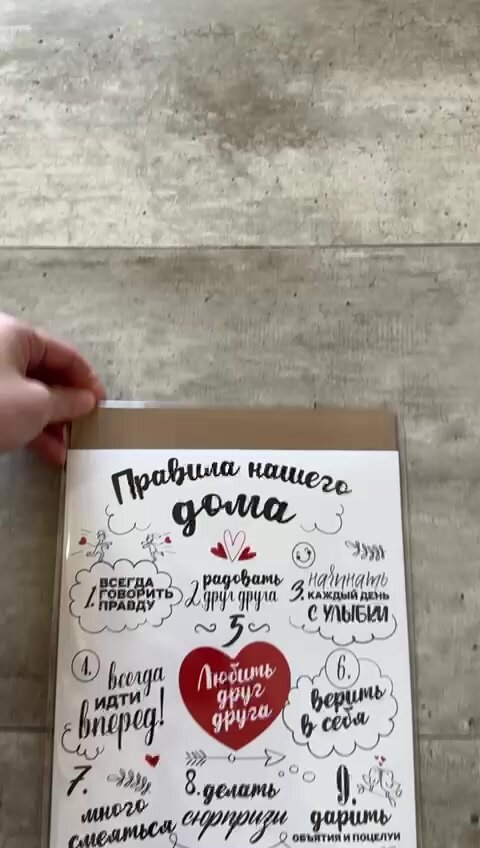 Правила нашего
дома
1. ВСЕГДА
ГОВОРИТЬ
ПРАВДУ
2. радовать
друг друга
3. начинать
КАЖДЫЙ ДЕНЬ
С УЛЫБКИ
4. всегда
идти
вперед!
5
Любить
друг
друга
6.
верить
в себя
7.
много
смеяться
8. делать
сюрпризы
9.
дарить
ОБЪЯТИЯ И ПОЦЕЛУИ